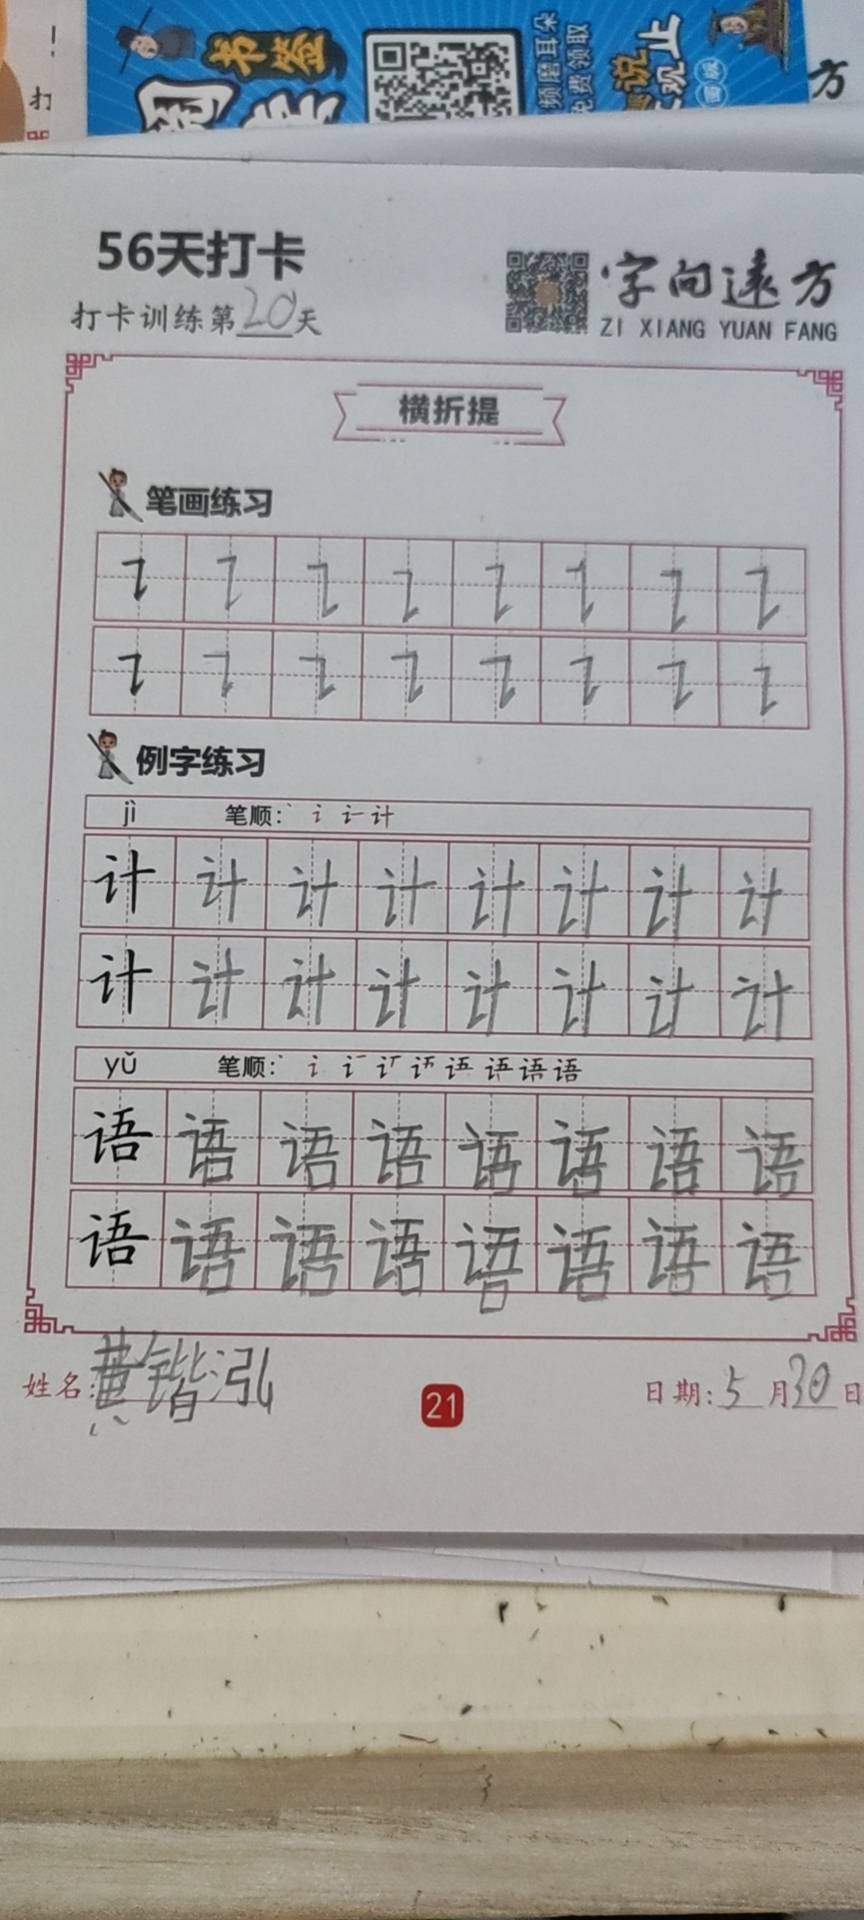 打
书签
频磨耳朵
免费领取
说止
观
画版
方
56天打卡
打卡训练第20天
字向远方
ZI XIANG YUAN FANG
横折提
笔画练习
例字练习
jì 笔顺: 丶 讠 计
计 计 计 计 计 计 计 计
计 计 计 计 计 计 计 计
yǔ 笔顺: 丶 讠 语 语 语
语 语 语 语 语 语 语 语
语 语 语 语 语 语 语 语
姓名:黄锴泓
21
日期:5月30日